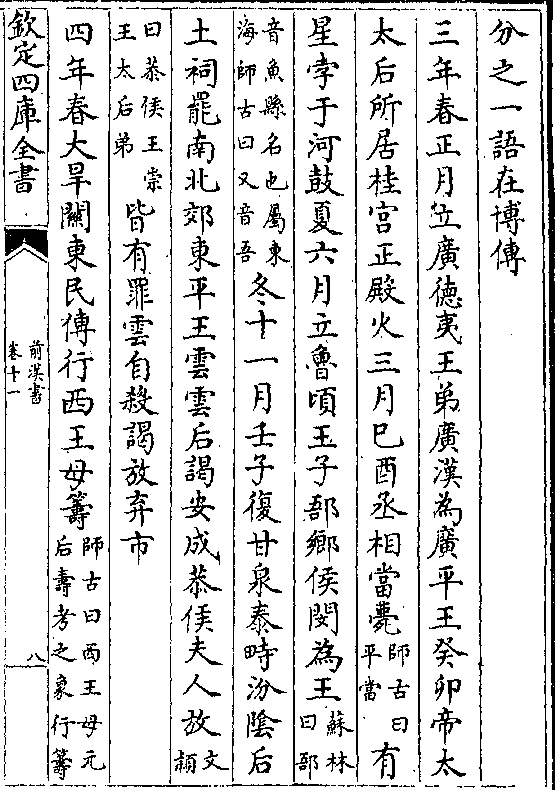 分之一語在博傳
三年春正月立廣德夷王弟廣漢為廣平王癸卯帝太
太后所居桂宮正殿火三月己酉丞相當薨師古曰平當有
星孛于河鼓夏六月立魯頃王子郚鄉侯閔為王蘇林曰郚
音魚縣名也屬東海師古曰又音吾冬十一月壬子復甘泉泰畤汾陰后
土祠罷南北郊東平王雲雲后謁安成恭侯夫人放文頴
曰恭侯王崇王太后弟皆有罪雲自殺謁放弃市
四年春大旱關東民傳行西王母籌師古曰西王母元后壽考之象行籌
欽定四庫全書
前漢書
卷十一
八